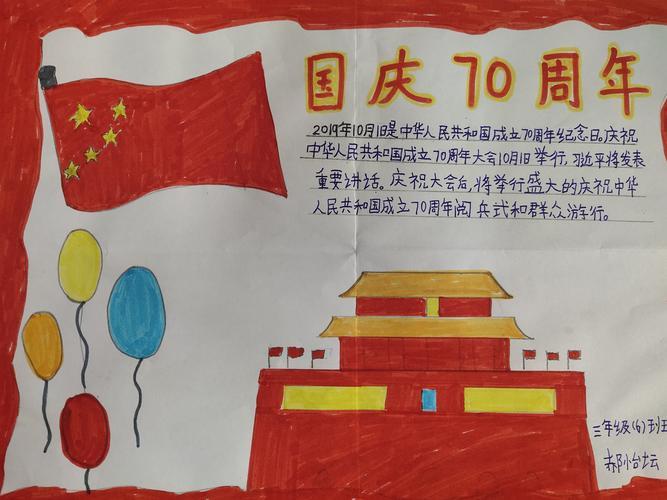 国庆70周年
2019年10月1日是中华人民共和国成立70周年纪念日,庆祝
中华人民共和国成立70周年大会10月1日举行,习近平将发表
重要讲话。庆祝大会后,将举行盛大的庆祝中华
人民共和国成立70周年阅兵式和群众游行。
三年级(6)班
郝怡坛